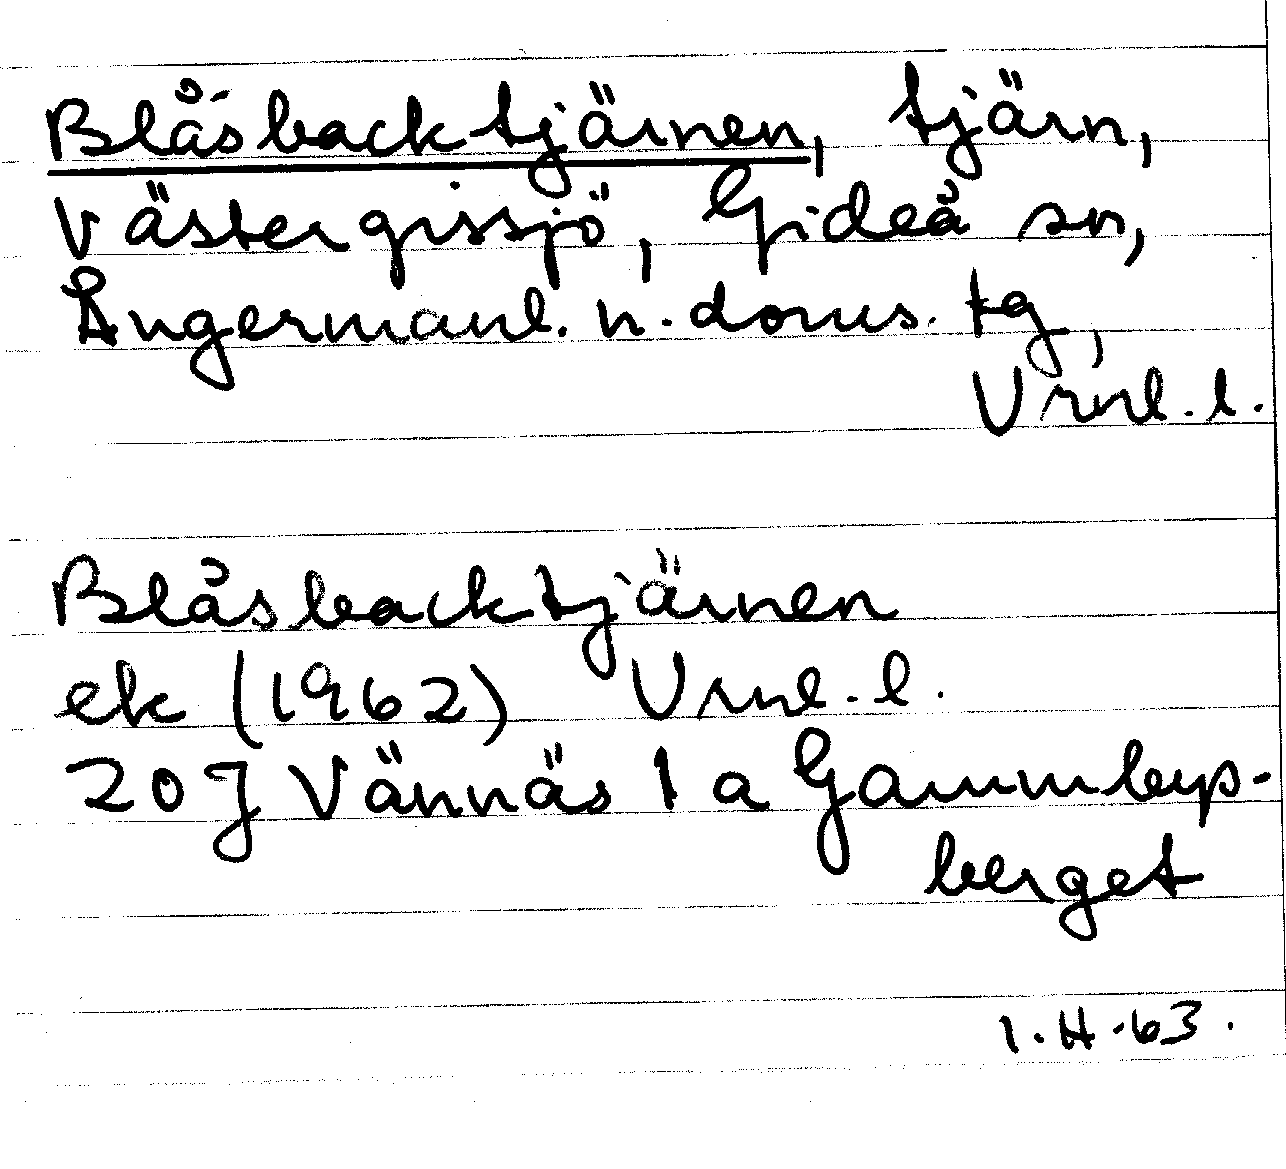 Blåsbacktjärnen, tjärn,
Västergissjö, Gideå sn,
Ångermanl. n. doms. tg,
Vrnl. l.
Blåsbacktjärnen
ek (1962) Vrnl. l.
20J Vännäs 1 a Gammbyp-
berget
I. H. -63.